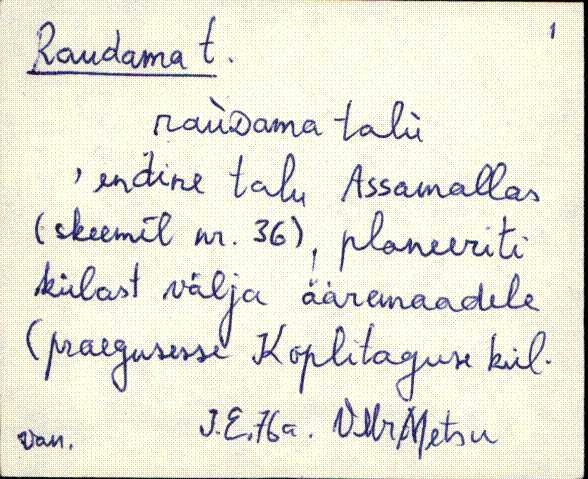 1
Raudama t.
raùDama talù
, endine talu Assamallas
(skeemil nr. 36), planeeriti
külast välja ääremaadele
(praegusesse Koplitaguse kül.
J.E. 76a.
van.